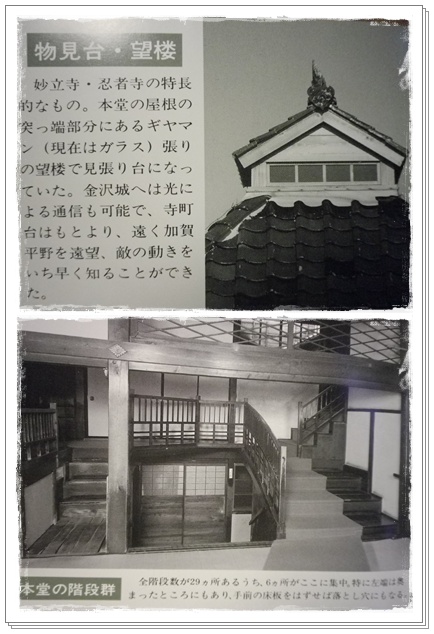 物見台・望楼
妙立寺・忍者寺の特長
的なもの。本堂の屋根の
突っ端部分にあるギヤマ
ン（現在はガラス）張り
の望楼で見張り台になっ
ていた。金沢城へは光に
よる通信も可能で、寺町
台はもとより、遠く加賀
平野を遠望、敵の動きを
いち早く知ることができ
た。
本堂の階段群
全階段数が29ヵ所あるうち、6ヵ所がここに集中、特に左端は奥
まったところにもあり、手前の床板をはずせば落とし穴にもなる。